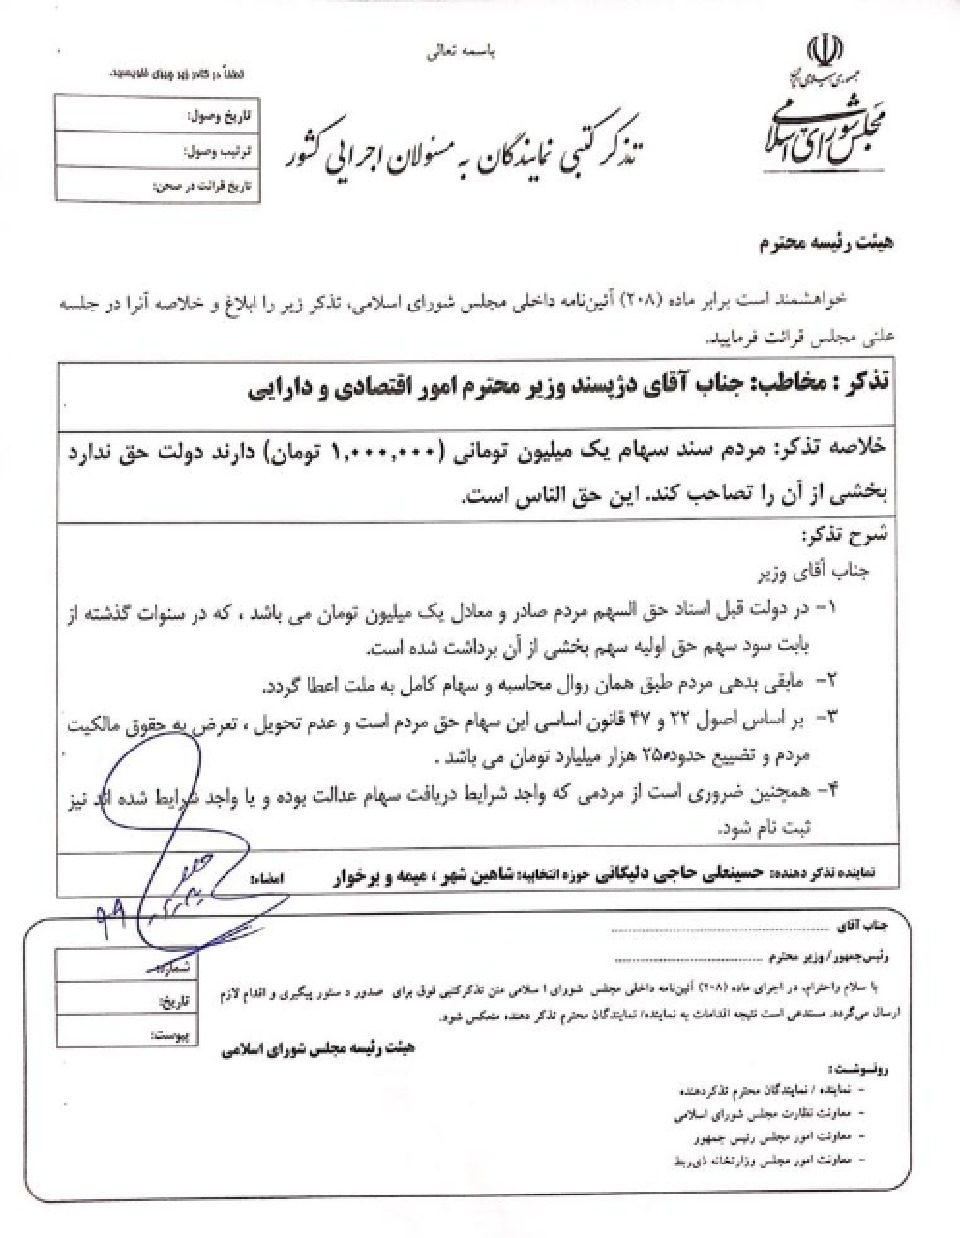 باسمه تعالی
جمهوری اسلامی ایران
مجلس شورای اسلامی
لطفاً در کادر زیر چیزی ننویسید.
تاریخ وصول:
ترتیب وصول:
تاریخ قرائت در صحن:
تذکر کتبی نمایندگان به مسئولان اجرایی کشور
هیئت رئیسه محترم
خواهشمند است برابر ماده (۲۰۸) آئین‌نامه داخلی مجلس شورای اسلامی، تذکر زیر را ابلاغ و خلاصه آنرا در جلسه
علنی مجلس قرائت فرمایید.
تذکر : مخاطب: جناب آقای دژپسند وزیر محترم امور اقتصادی و دارایی
خلاصه تذکر: مردم سند سهام یک میلیون تومانی (۱,۰۰۰,۰۰۰ تومان) دارند دولت حق ندارد
بخشی از آن را تصاحب کند. این حق الناس است.
شرح تذکر:
جناب آقای وزیر
۱- در دولت قبل اسناد حق السهم مردم صادر و معادل یک میلیون تومان می باشد ، که در سنوات گذشته از
بابت سود سهم حق اولیه سهم بخشی از آن برداشت شده است.
۲- مابقی بدهی مردم طبق همان روال محاسبه و سهام کامل به ملت اعطا گردد.
۳- بر اساس اصول ۲۲ و ۴۷ قانون اساسی این سهام حق مردم است و عدم تحویل ، تعرض به حقوق مالکیت
مردم و تضییع حدود ۲۵۰ هزار میلیارد تومان می باشد .
۴- همچنین ضروری است از مردمی که واجد شرایط دریافت سهام عدالت بوده و یا واجد شرایط شده اند نیز
ثبت نام شود.
نماینده تذکر دهنده: حسینعلی حاجی دلیگانی حوزه انتخابیه: شاهین شهر ، میمه و برخوار امضاء:
جناب آقای
رئیس‌جمهور/ وزیر محترم
با سلام واحترام، در اجرای ماده (۲۰۸) آئین‌نامه داخلی مجلس شورای ا سلامی متن تذکرکتبی فوق برای صدور د ستور پیگیری و اقدام لازم
ارسال می‌گردد. مستدعی است نتیجه اقدامات به نماینده/ نمایندگان محترم تذکر دهنده منعکس شود.
شماره:
تاریخ:
پیوست:
هیئت رئیسه مجلس شورای اسلامی
رونوشت:
- نماینده / نمایندگان محترم تذکردهنده
- معاونت نظارت مجلس شورای اسلامی
- معاونت امور مجلس رئیس جمهور
- معاونت امور مجلس وزارتخانه ذی‌ربط